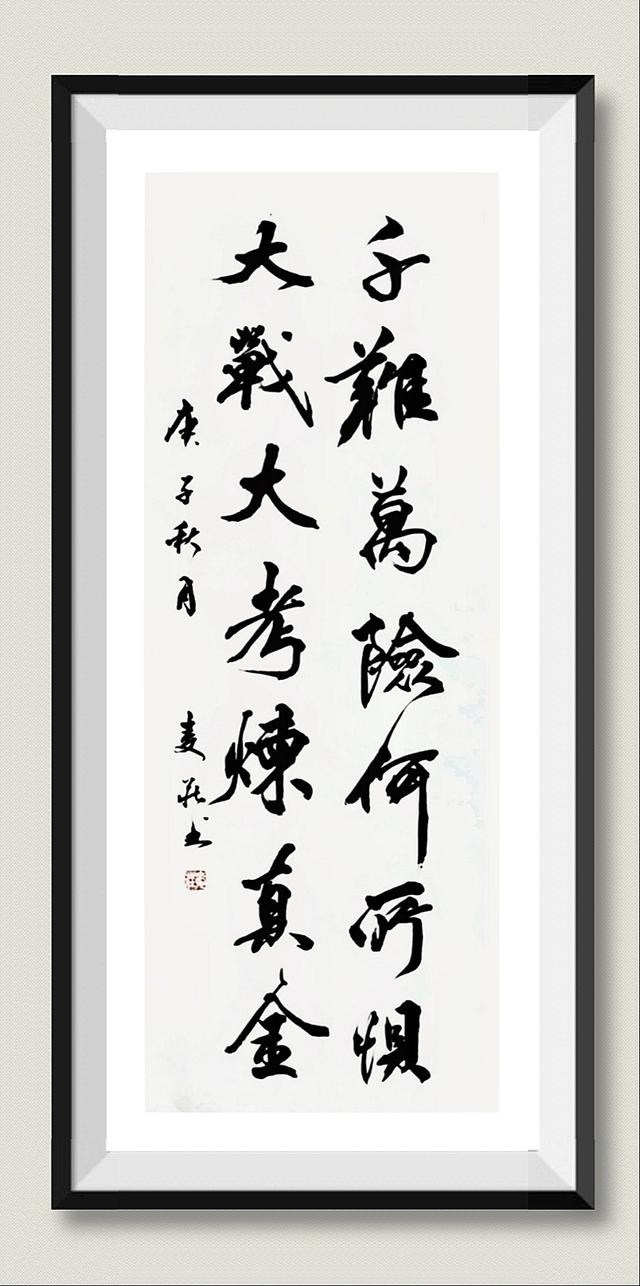 千難萬險何所惧
大戰大考煉真金
庚子秋月 书